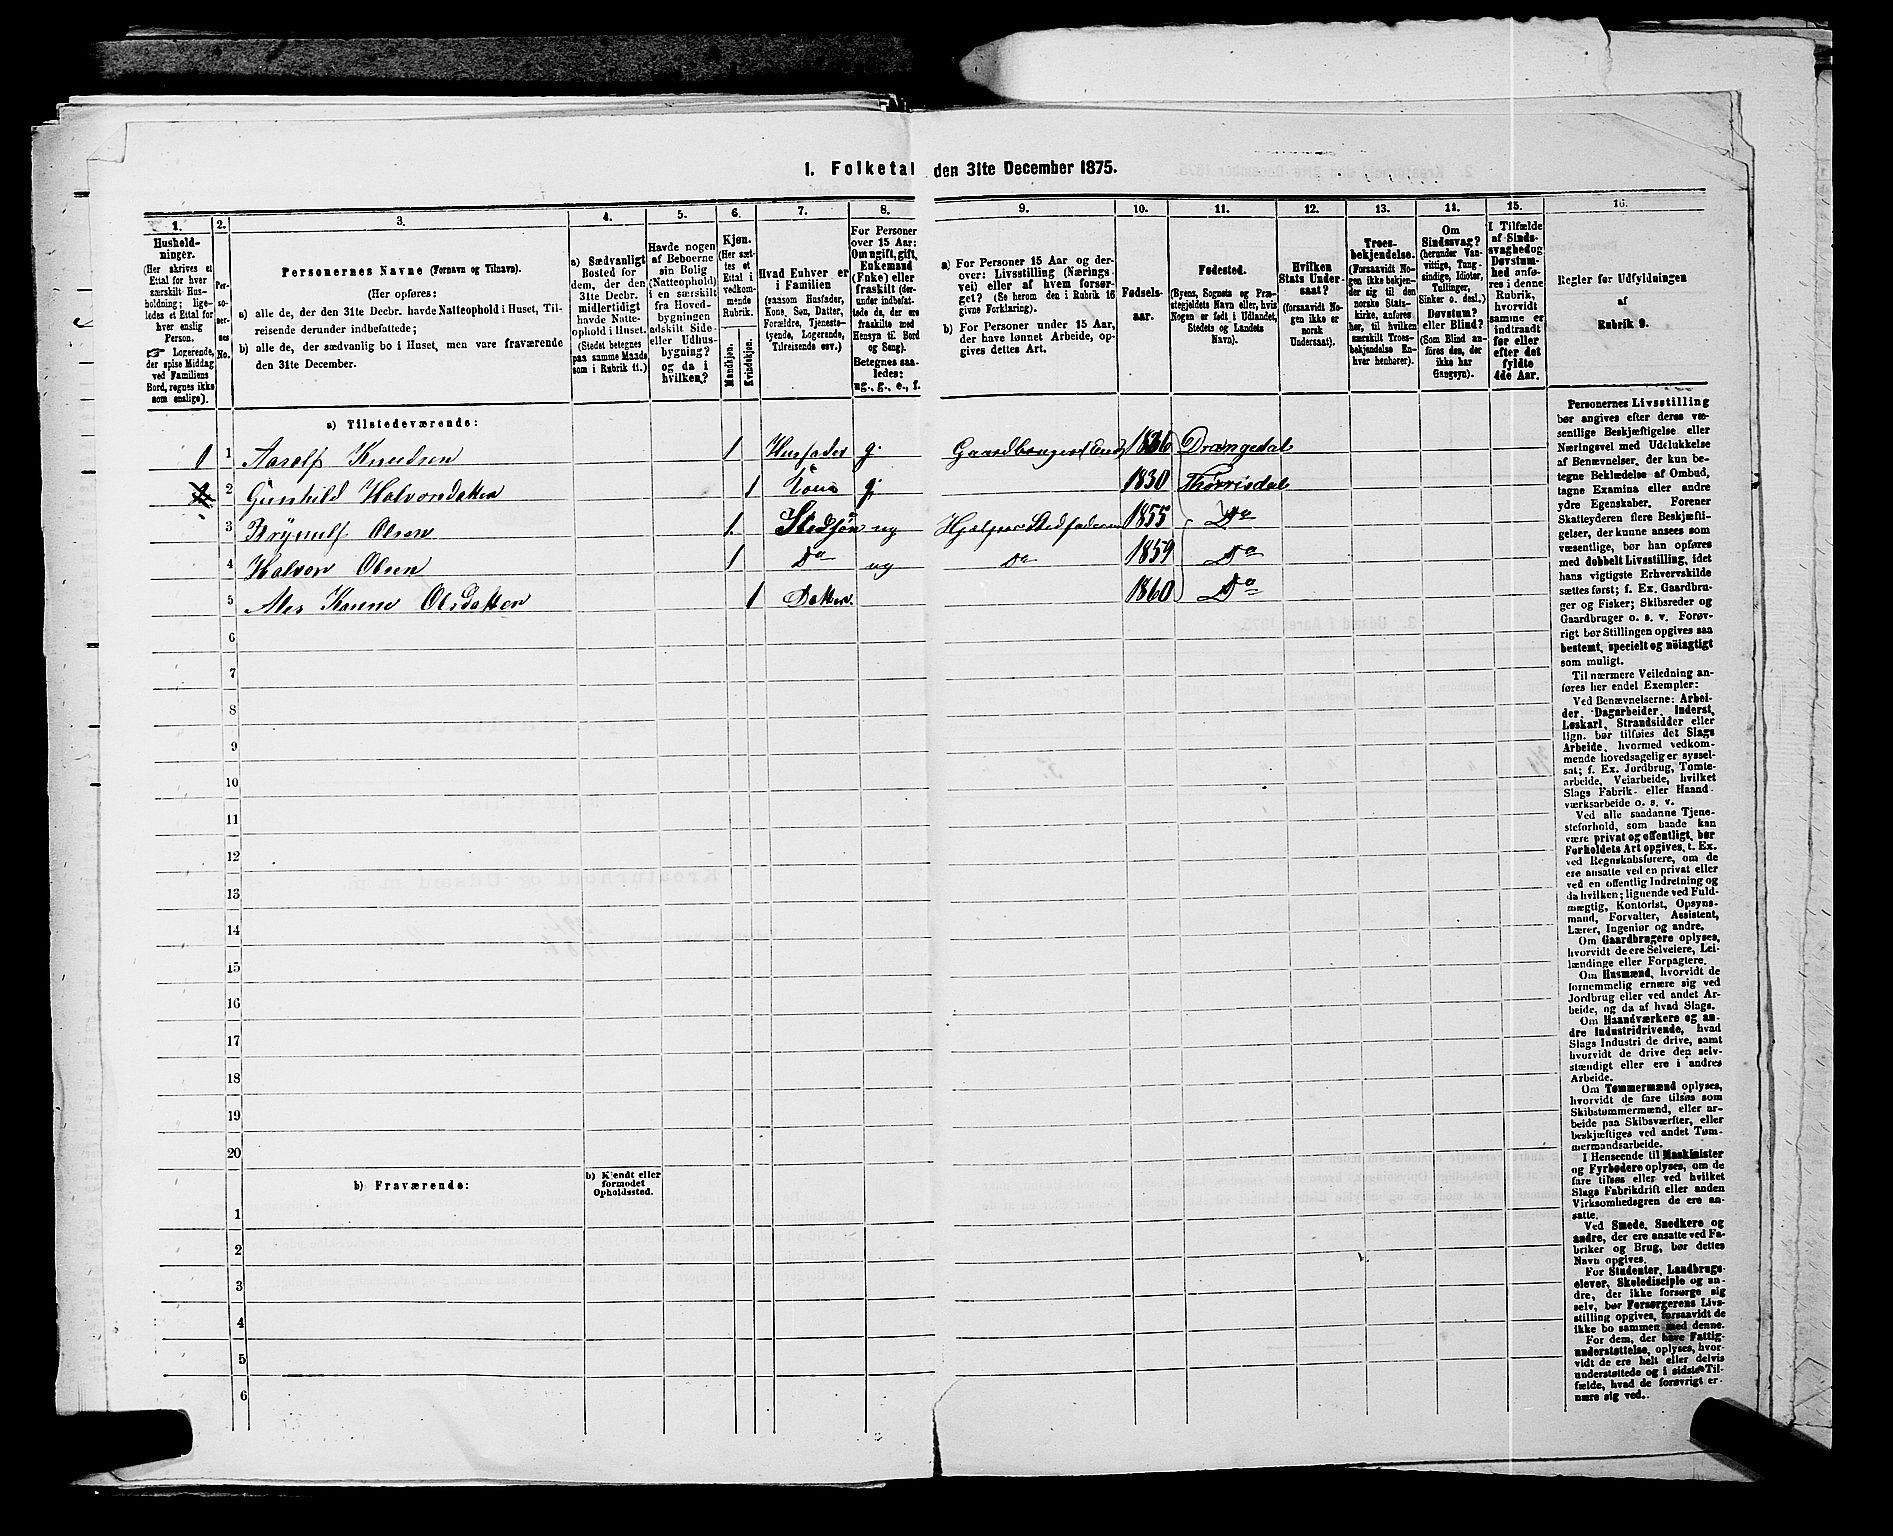 1. Folketal den 31te December 1875.
1. 2. 3. 4. 5. 6. 7. 8. 9. 10. 11. 12. 13. 14. 15. 16.
Hushold-
ninger.
(Her skrives et
Ettal for hver
særskilt Hus-
holdning; lige-
ledes et Ettal for
hver enslig
Person.
☞ Logerende,
der spise Middag
ved Familiens
Bord, regnes ikke
som enslige).
Per-
so-
ner-
nes
No.
Personernes Navne (Fornavn og Tilnavn).
(Her opføres:
a) alle de, der den 31te Decbr. havde Natteophold i Huset, Til-
reisende derunder indbefattede;
b) alle de, der sædvanlig bo i Huset, men vare fraværende
den 31te December.
a) Sædvanligt
Bosted for
dem, der den
31te Decbr.
midlertidigt
havde Natte-
ophold i Huset.
(Stedet betegnes
paa samme Maade
som i Rubrik 11.)
Havde nogen
af Beboerne
sin Bolig
(Natteophold)
i en særskilt
fra Hoved-
bygningen
adskilt Side-
eller Udhus-
bygning?
og da i
hvilken?
Kjøn.
(Her sæt-
tes et
Ettal i
vedkom-
mende
Rubrik.
Mandkjøn.
Kvindekjøn.
Hvad Enhver er
i Familien
(saasom Husfader,
Kone, Søn, Datter,
Forældre, Tjeneste-
tyende, Logerende,
Tilreisende osv.)
For Personer
over 15 Aar:
Om ugift, gift,
Enkemand
(Enke) eller
fraskilt (der-
under indbefat-
tede de, der ere
fraskilte med
Hensyn til Bord
og Seng).
Betegnes saa-
ledes:
ug., g., e., f.
a) For Personer 15 Aar og der-
over: Livsstilling (Nærings-
vei) eller af hvem forsør-
get? (Se herom den i Rubrik 16
givne Forklaring).
b) For Personer under 15 Aar,
der have lønnet Arbeide, op-
gives dettes Art.
Fødsels-
aar.
Fødested.
(Byens, Sognets og Præ-
stegjeldets Navn eller, hvis
Nogen er født i Udlandet,
Stedets og Landets
Navn).
Hvilken
Stats Under-
saat?
(forsaavidt No-
gen ikke er
norsk
Undersaat).
Troes-
bekjendelse.
(Forsaavidt No-
gen ikke bekjen-
der sig til den
norske Stats-
kirke, anføres
her, til hvilken
særskilt Troes-
bekjendelse En-
hver henhører).
Om
Sindssvag?
(herunder Van-
vittige, Tung-
sindige, Idioter,
Tullinger,
Sinker o. desl.)
Døvstum?
eller Blind?
(Som Blind an-
føres den, der
ikke har
Gangsyn).
I Tilfælde
af Sinds-
svaghed og
Døvstum-
hed anfø-
res i denne
Rubrik,
hvorvidt
samme er
indtraadt
før eller
efter det
fyldte
4de Aar.
Regler for Udfyldningen
af
Rubrik 9.
a) Tilstedeværende:
1 1 Aarolf Knudsen 1 Husfader g. Gaardbruger 1836 Drangedal
2 Gunhild Halvorsdatter 1 Kone g. 1830 Thørrisdal
3 Brynulf Olsen 1. Stedsøn ug Hjelper Stedfaderen 1855 Do
4 Halvor Olsen 1 Do ug Do 1859 Do
5 Olsdatter 1 Datter. 1860 Do
6
7
8
9
10
11
12
13
14
15
16
17
18
19
20
b) Fraværende:
b) Kjendt eller
formodet
Opholdssted.
1
2
3
4
5
6
Personernes Livsstilling
bør angives efter deres væ-
sentlige Beskjæftigelse eller
Næringsvei med Udelukkelse
af Benævnelser, der kun be-
tegne Beklædelse af Ombud,
tagne Examina eller andre
ydre Egenskaber. Forener
Skatteyderen flere Beskjæfti-
gelser, der kunne ansees som
væsentlige, bør han opføres
med dobbelt Livsstilling, idet
hans vigtigste Erhvervskilde
sættes først; f. Ex. Gaardbru-
ger og Fisker; Skibsreder og
Gaardbruger o. s. v. Forøv-
rigt bør Stillingen opgives saa
bestemt, specielt og nöiagtigt
som muligt.
Til nærmere Veiledning an-
føres her endel Exempler:
Ved Benævnelserne: Arbei-
der, Dagarbeider, Inderst,
Løskarl, Strandsidder eller
lign. bør tilføies det Slags
Arbeide, hvormed vedkom-
mende hovedsagelig er syssel-
sat; f. Ex. Jordbrug, Tomte-
arbeide, Veiarbeide, hvilket
Slags Fabrik- eller Haand-
værksarbeide o. s. v.
Ved alle saadanne Tjene-
steforhold, som baade kan
være privat og offentligt, bør
Forholdets Art opgives, f. Ex.
ved Regnskabsførere, om de
ere ansatte ved en privat eller
ved en offentlig Indretning og
da hvilken; lignende ved Fuld-
mægtig, Kontorist, Opsyns-
mand, Forvalter, Assistent,
Lærer, Ingeniør og andre.
Om Gaardbrugere oplyses,
hvorvidt de ere Selveiere, Lei-
lændinge eller Forpagtere.
Om Husmænd, hvorvidt de
fornemmelig ernære sig ved
Jordbrug eller ved andet Ar-
beide, og da af hvad Slags.
Om Haandværkere og an-
dre Industridrivende, hvad
Slags Industri de drive, samt
hvorvidt de drive den selv-
stændigt eller ere i andres
Arbeide.
Om Tømmermænd oplyses,
hvorvidt de fare tilsøs som
Skibstømmermænd, eller ar-
beide paa Skibsværfter, eller
beskjæftiges ved andet Tøm-
mermandsarbeide.
I Henseende til Maskinister
og Fyrbødere oplyses, om de
fare tilsøs eller ved hvilket
Slags Fabrikdrift eller anden
Virksomhedsgren de ere an-
satte.
Ved Smede, Snedkere og
andre, der ere ansatte ved Fa-
briker og Brug, bør dettes
Navn opgives.
For Studenter, Landbrugs-
elever, Skoledisciple og an-
dre, der ikke forsørge sig
selv, bør Forsørgerens Livs-
stilling opgives, forsaavidt de
ikke bo sammen med denne.
For dem, der have Fattig-
understøttelse, oplyses, hvor-
vidt de ere helt eller delvis
understøttede og i sidste Til-
fælde, hvad de forøvrigt er-
nære sig ved.